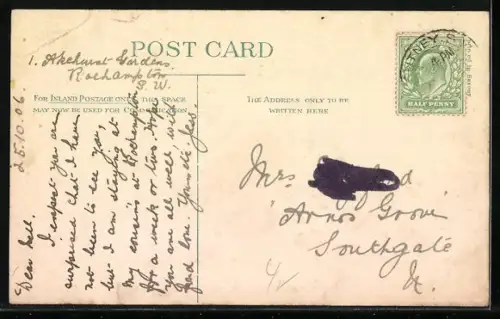 POST CARD
1. Akehurst Gardens
Roehampton
S. W.
FOR INLAND POSTAGE ONLY THIS SPACE
MAY NOW BE USED FOR COMMUNICATION
THE ADDRESS ONLY TO BE
WRITTEN HERE
25.10.06.
Dear Nell.
I expect you are
surprised that I have
not been to see you,
but I am staying at
my cousins at Roehampton
for a week or two. Hope
you are all well with
fond love. Yours etc. Jess.
PUTNEY. S.W
HALF PENNY
Mrs
"Arnos Grove
Southgate
N.